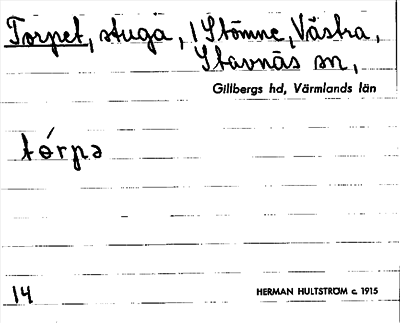 Torpet, stuga, i Stömne, Västra,
Stavnäs sn,
Gillbergs hd, Värmlands län
tórpə
14
HERMAN HULTSTRÖM c. 1915